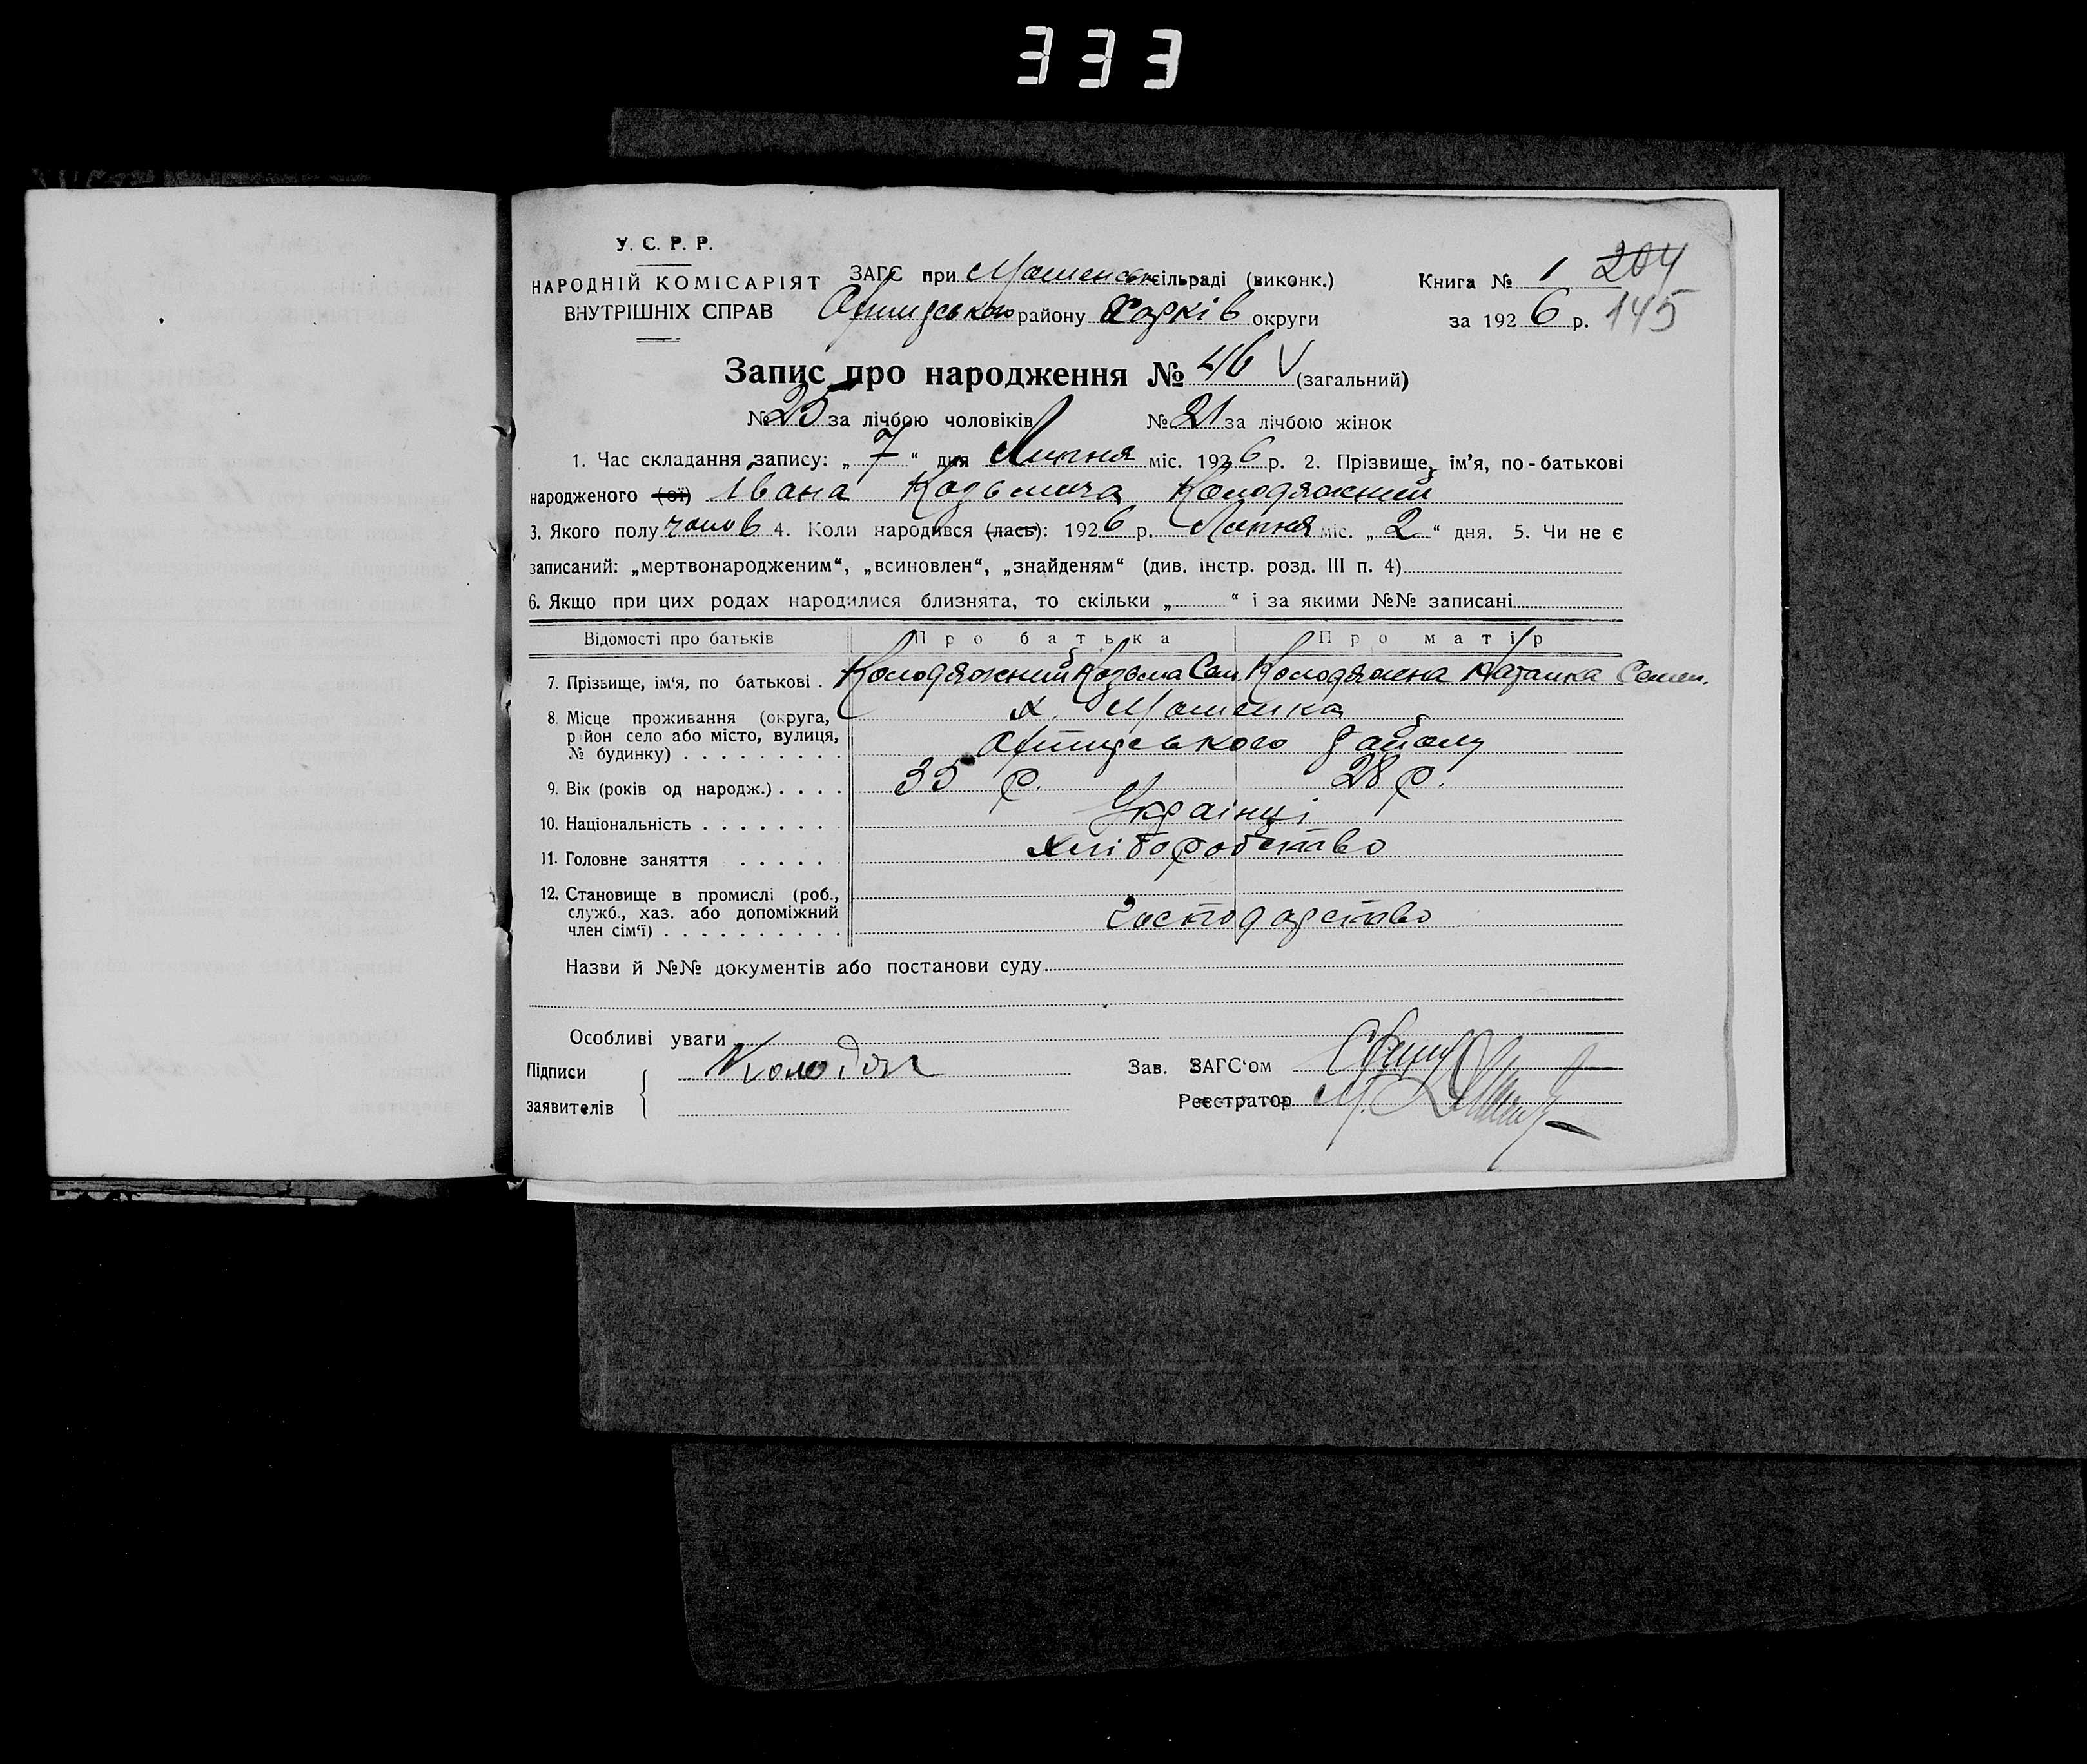 333
У. С. Р. Р.
НАРОДНІЙ КОМІСАРІЯТ
ВНУТРІШНІХ СПРАВ
ЗАГС при сільраді (виконк.)
району Харків округи
Книга № 1 204
за 1926 р. 145
Запис про народження № 46 V (загальний)
№ 25 за лічбою чоловіків № 21 за лічбою жінок
1. Час складання запису: „ 7 “ дня Липня міс. 1926 р. 2. Прізвище, ім’я, по-батькові
народженого (ої) Івана Козьмича Колодяжний
3. Якого полу чолов 4. Коли народився (лась): 1926 р. Липня міс. „ 2 “ дня. 5. Чи не є
записаний: „мертвонародженим“, „всиновлен“, „знайденям“ (див. інстр. розд. III п. 4)
6. Якщо при цих родах народилися близнята, то скільки „ “ і за якими №№ записані
Відомості про батьків Про батька Про матір
7. Прізвище, ім‘я, по батькові . Колодяжний Козьма Сем. Колодяжна Наталка Семен.
8. Місце проживання (округа,
район село або місто, вулиця,
№ будинку) . . . . . . . . .
х.
району
9. Вік (років од народж.) . . . . 35 р. 28 р.
10. Національність . . . . . . . Українці
11. Головне заняття . . . . . Хліборобство
12. Становище в промислі (роб.,
служб., хаз. або допоміжний
член сім‘ї) . . . . . . . . . . Господарство
Назви й №№ документів або постанови суду
Особливі уваги
Підписи
заявителів
Колодяж
Зав. ЗАГС‘ом
Реєстратор